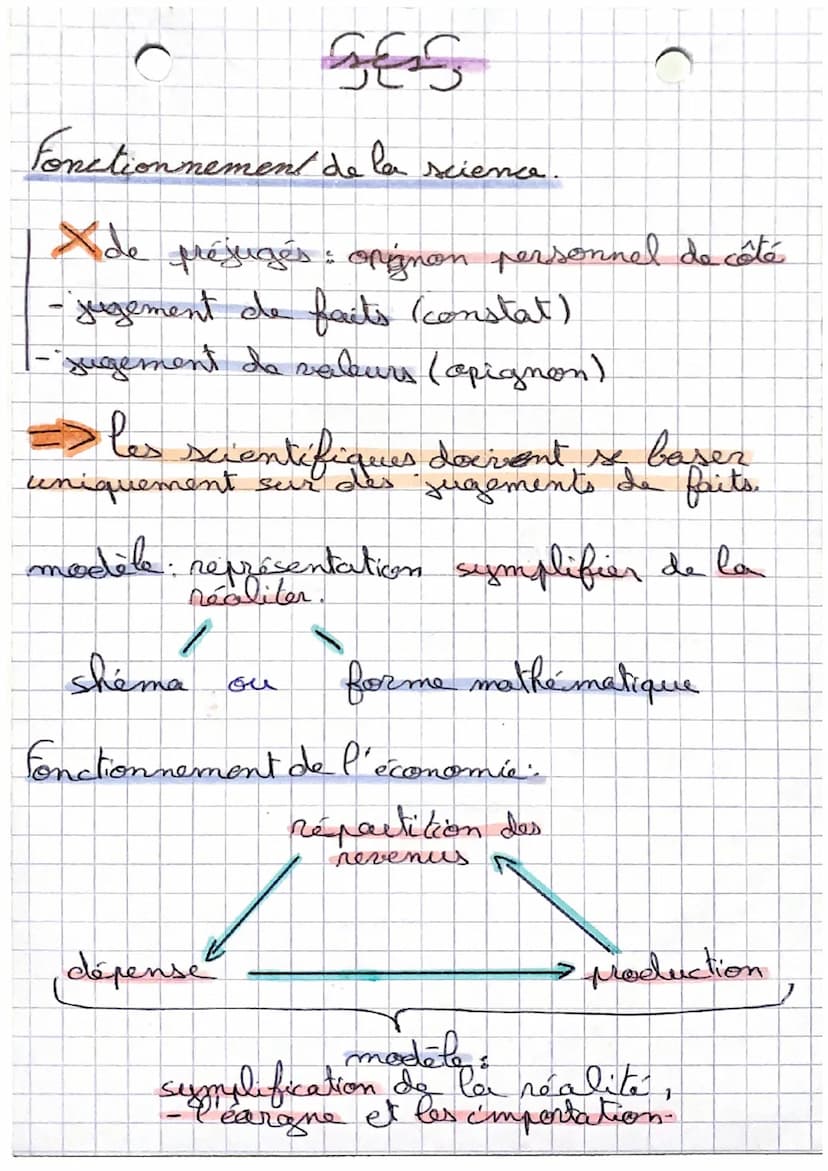 SES
Fonctionnement de la science.
X de préjugés : opignon personnel de côté
- jugement de faits (constat)
- jugement de valeurs (opignon)
=> les scientifiques doivent se baser
uniquement sur des jugements de faits.
modèle : représentation symplifier de la
réaliter.
shéma ou forme mathématique
Fonctionnement de l'économie :
répartition des
revenus
dépense → production
modèle :
symplification de la réalité,
- l'éargne et les importation -